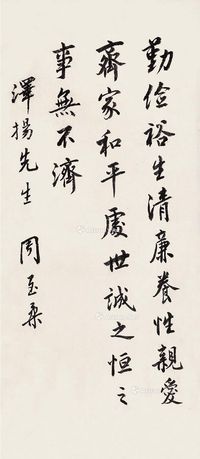 勤儉裕生清廉養性親愛
齊家和平處世誠之恒之
事無不濟
澤揚先生
周至柔